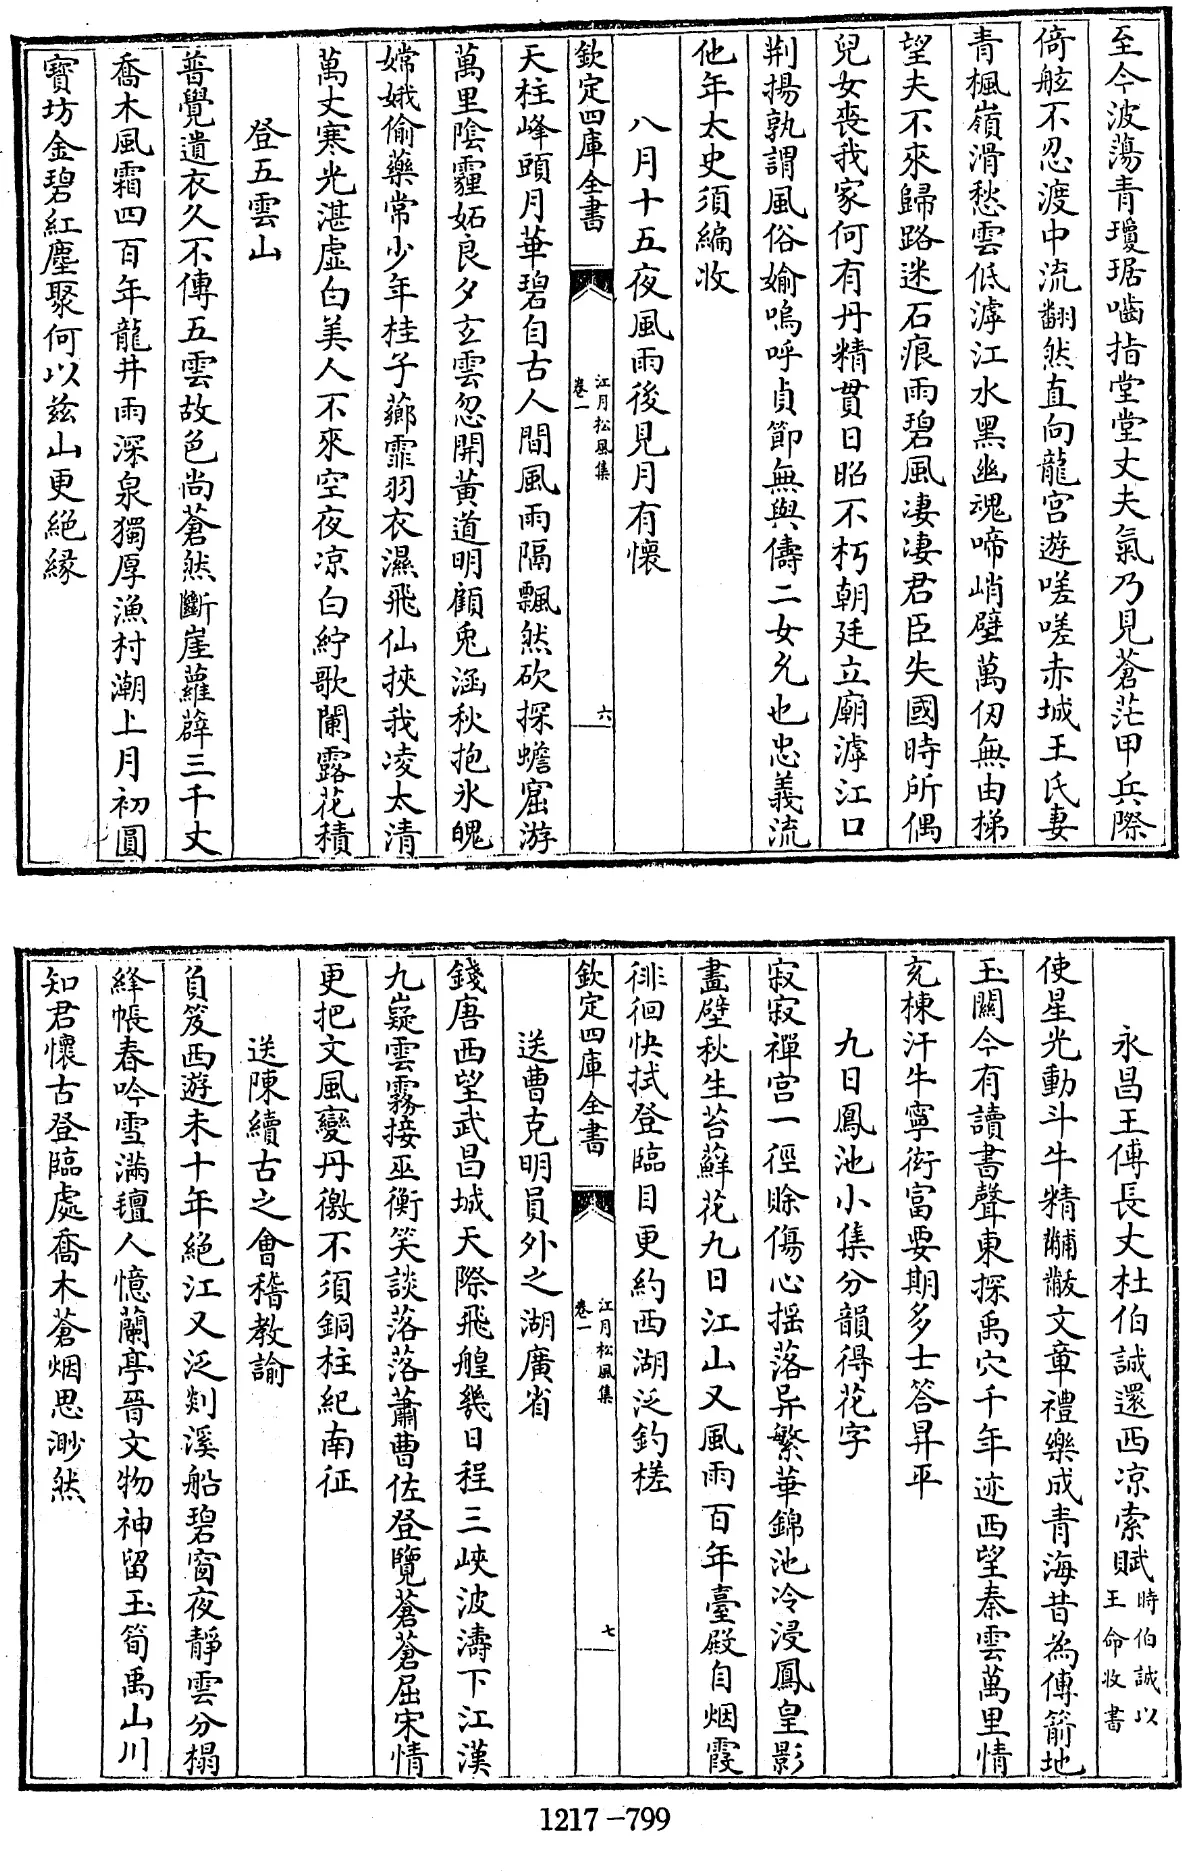 至今波蕩青瓊琚嚙指堂堂丈夫氣乃見蒼茫甲兵際
倚舷不忍渡中流翻然直向龍宮遊嗟嗟赤城王氏妻
青楓嶺滑愁雲低㴑江水黑幽魂啼峭壁萬仞無由梯
望夫不來歸路迷石痕雨碧風凄凄君臣失國時所偶
兒女喪我家何有丹精貫日昭不朽朝廷立廟㴑江口
荆揚孰謂風俗媮嗚呼貞節無與儔二女允也忠義流
他年太史須編收
八月十五夜風雨後見月有懷
欽定四庫全書
江月松風集
卷一
六
天柱峰頭月華碧自古人間風雨隔飄然欲探蟾窟游
萬里陰霾妬良夕玄雲忽開黃道明顧兎涵秋抱氷魄
嫦娥偷藥常少年桂子薌霏羽衣濕飛仙挾我凌太清
萬丈寒光湛虚白美人不來空夜凉白紵歌闌露花積
登五雲山
普覺遺衣久不傳五雲故色尚蒼然斷崖蘿薜三千丈
喬木風霜四百年龍井雨深泉獨厚漁村潮上月初圓
寶坊金碧紅塵聚何以兹山更絕緣
永昌王傅長丈杜伯誠還西凉索賦時伯誠以王命收書
使星光動斗牛精黼黻文章禮樂成青海昔為傅箭地
玉關今有讀書聲東探禹穴千年迹西望秦雲萬里情
充棟汗牛寧衒富要期多士答昇平
九日鳳池小集分韻得花字
寂寂禪宫一徑賒傷心揺落异繁華錦池冷浸鳳皇影
畫壁秋生苔蘚花九日江山又風雨百年臺殿自烟霞
徘徊快拭登臨目更約西湖泛釣槎
欽定四庫全書
江月松風集
卷一
七
送曹克明員外之湖廣省
錢唐西望武昌城天際飛艎幾日程三峽波濤下江漢
九嶷雲霧接巫衡笑談落落蕭曹佐登覽蒼蒼屈宋情
更把文風變丹徼不須銅柱紀南征
送陳續古之會稽教諭
負笈西遊未十年絕江又泛剡溪船碧窗夜靜雲分榻
絳帳春吟雪滿氊人憶蘭亭晉文物神留玉筍禹山川
知君懷古登臨處喬木蒼烟思渺然
1217-799